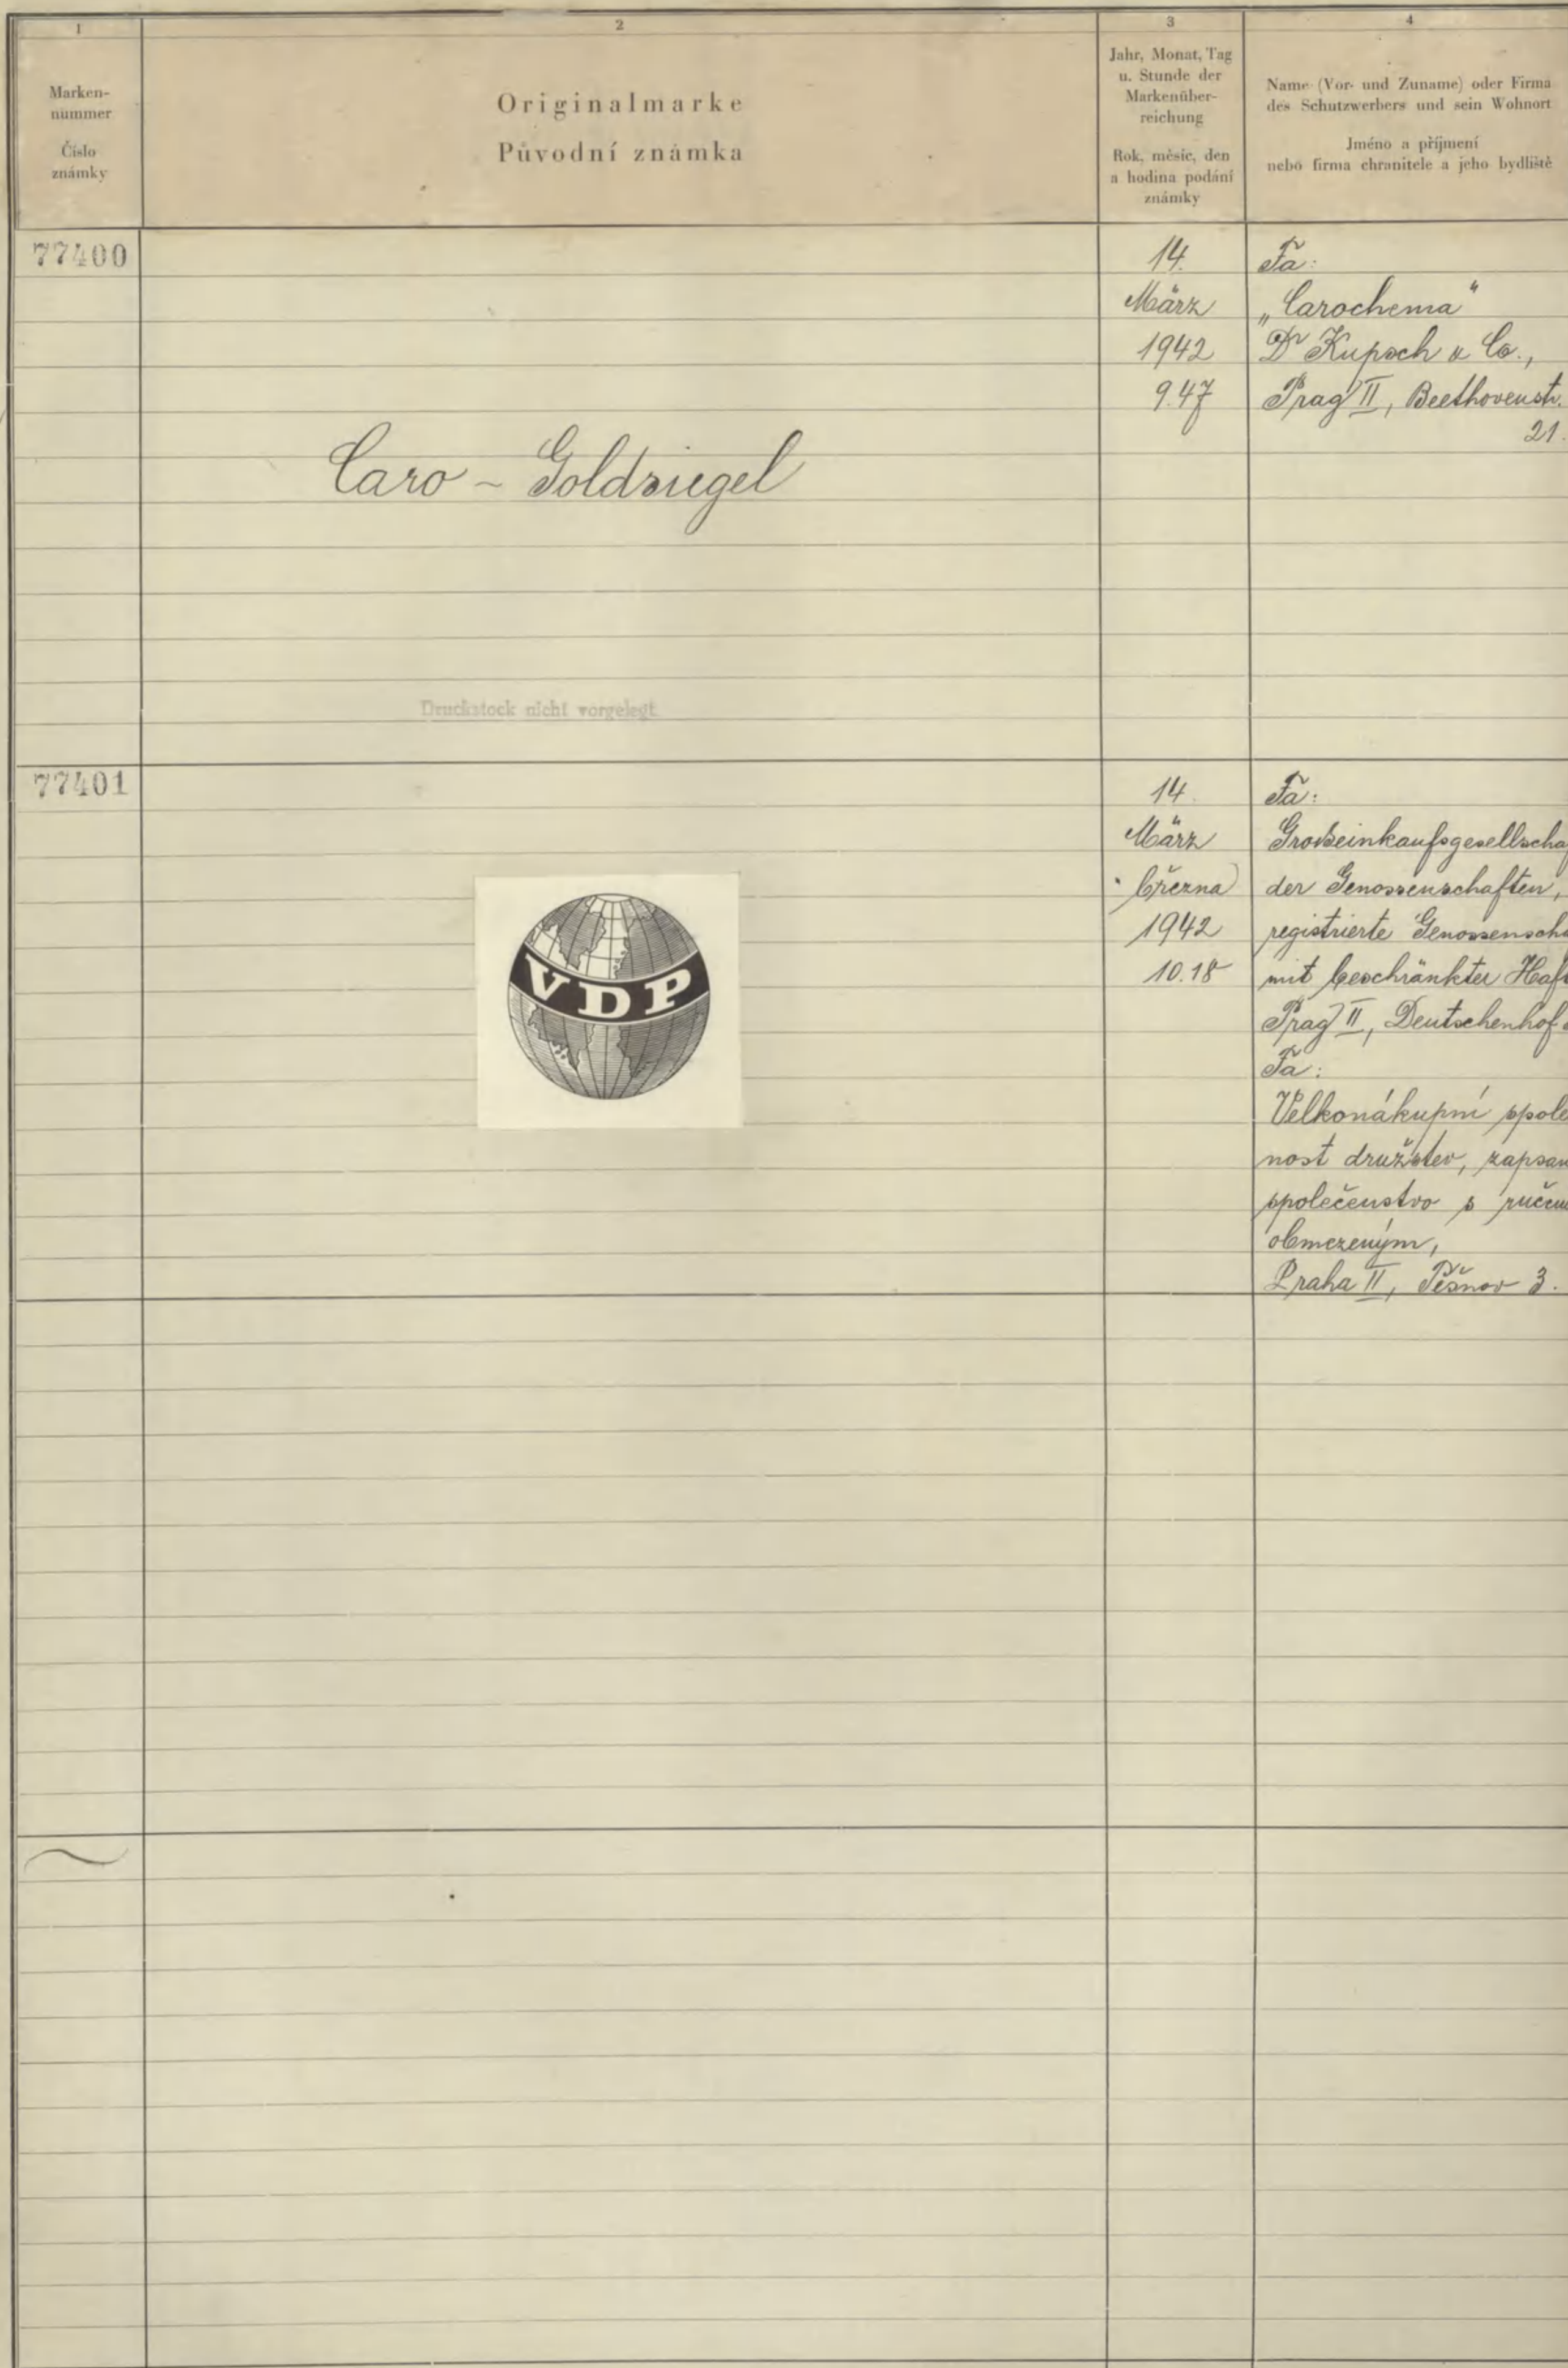 1
Marken-
nummer
Číslo
známky
2
Originalmarke
Původní známka
3
Jahr, Monat, Tag
u. Stunde der
Markenüber-
reichung
Rok, měsíc, den
a hodina podání
známky
4
Name (Vor- und Zuname) oder Firma
des Schutzwerbers und sein Wohnort
Jméno a příjmení
nebo firma chranitele a jeho bydliště
77400
Caro - Goldsiegel
Druckstock nicht vorgelegt
14.
März
1942
9.47
Fa:
„Carochema"
Dr Kupsch & Co.,
Prag II, Beethovenstr.
21.
77401
VDP
14.
März
března
1942
10.18
Fa:
Großeinkaufsgesellschaf
der Genossenschaften,
registrierte Genossenscha
mit beschränkter Haft
Prag II, Deutschenhof
Fa:
Velkonákupní společ
nost družstev, zapsan
společenstvo s ručen
obmezeným,
Praha II, Těšnov 3.